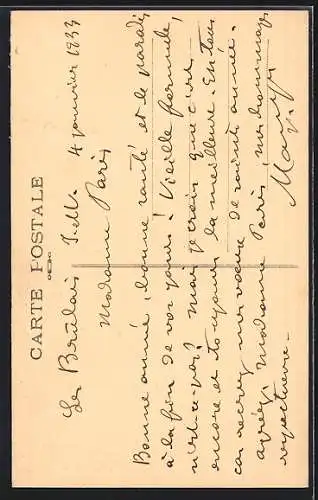 CARTE POSTALE
Les Brulais I.&V. 4 janvier 1933
Madame Paris
Bonne année, bonne santé et le paradis
à la fin de vos jours ! Vieille formule,
n'est-ce-pas ? Mais je crois que c'est
encore et toujours la meilleure. En tous
cas recevez mes vœux de sainte année.
agréez, Madame Paris, mes hommages
respectueux.